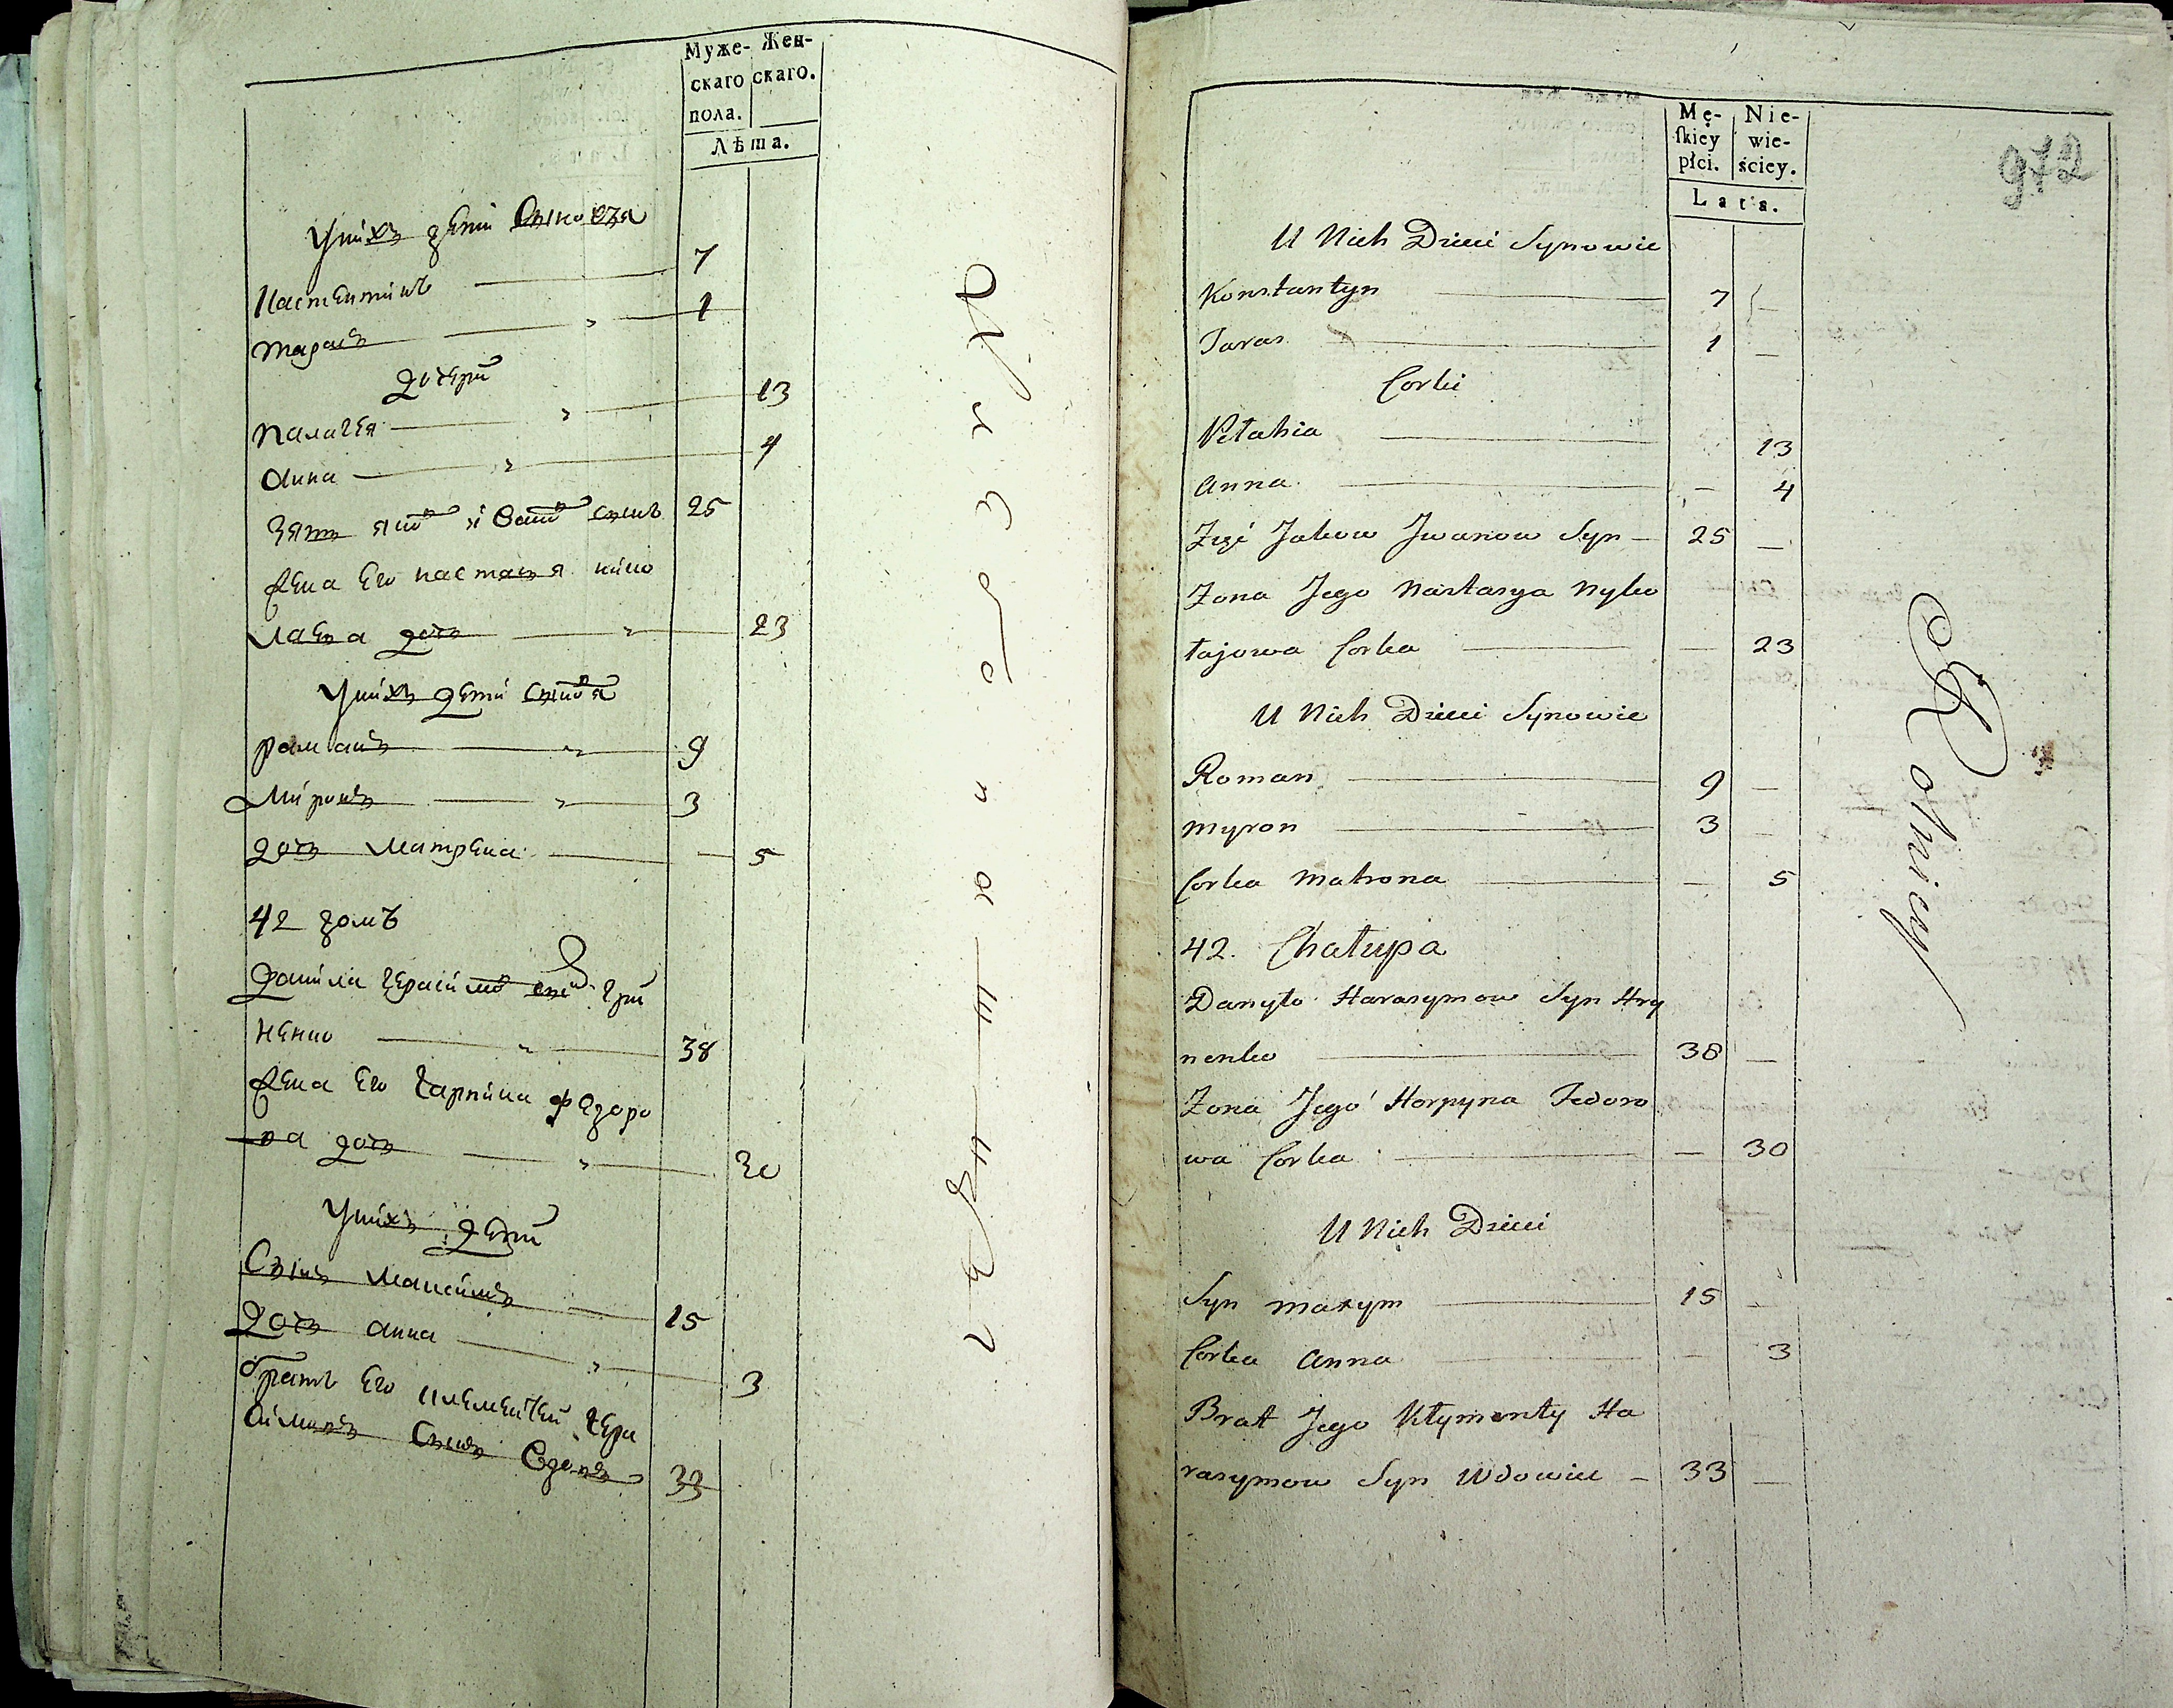 Муже- Жен-
скаго скаго.
пола.
Лѣта.
Унихъ дети Сыновя
Настентинъ 7
Тарасъ 1
дочери
Палагея 13
Анна 4
Зять яковъ Ивановъ сынъ 25
Жена Его настася нико
лаева дочь 23
Унихъ дети сыновя
Романъ 9
Миронъ 3
дочь Матрена 5
42 домъ
Данила Герасимовъ сынъ Гри
ненко 38
Жена Его Гарпина Федоро
ва дочь 30
Унихъ дети
Сынъ Максимъ 15
дочь анна 3
братъ Его Клементей Гера
симовъ Сынъ вдовъ 33
Mę- Nie-
ſkiey wie-
płci. ściey.
Lata.
972
U Nich Dzieci Synowie
Konstantyn 7
Taras 1
Corki
Pełahia 13
Anna 4
Zięć Jakow Jwanow Syn 25
Zona Jego Nastasya Nyko
łajowa Corka 23
U Nich Dzieci Synowie
Roman 9
Myron 3
Corka Matrona 5
42. Chałupa
Danyło Harasymow Syn Hry
nenko 38
Zona Jego Horpyna Fedoro
wa Corka 30
U Nich Dzieci
Syn Maxym 15
Corka Anna 3
Brat Jego Kłymenty Ha
rasymow Syn Wdowiec 33
Rolnicy